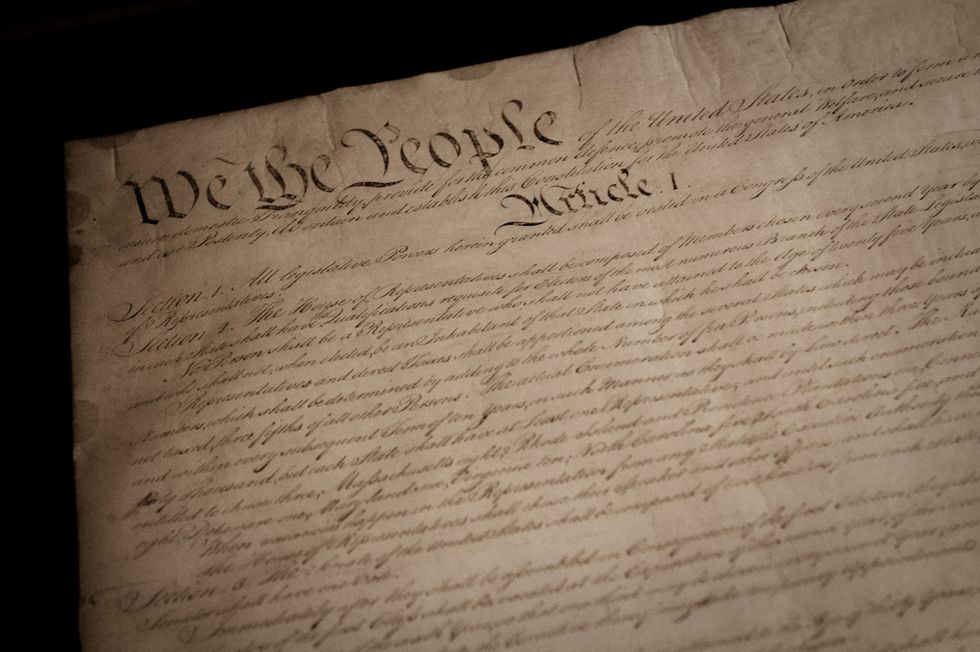 We the People of the United States, in Order to form a
insure domestic Tranquility, provide for the common defence, promote the general Welfare, and secure
and our Posterity, do ordain and establish this Constitution for the United States of America.
Article. I.
Section. 1. All legislative Powers herein granted shall be vested in a Congress of the United States,
of Representatives.
Section. 2. The House of Representatives shall be composed of Members chosen every second Year by
in each State shall have the Qualifications requisite for Electors of the most numerous Branch of the State
No Person shall be a Representative who shall not have attained to the Age of twenty five Years,
and who shall not, when elected, be an Inhabitant of that State in which he shall be chosen.
Representatives and direct Taxes shall be apportioned among the several States which may be
Numbers, which shall be determined by adding to the whole Number of free Persons, including those
not taxed, three fifths of all other Persons. The actual Enumeration shall be made within three Years
and within every subsequent Term of ten Years, in such Manner as they shall by Law direct. The
thirty Thousand, but each State shall have at Least one Representative; and until such enumeration
entitled to chuse three, Massachusetts eight, Rhode Island and Providence Plantations one,
eight, Delaware one, Maryland six, Virginia ten, North Carolina five, South Carolina five, and
When vacancies happen in the Representation from any State, the Executive Authority
The House of Representatives shall chuse their Speaker and other Officers; and shall
Section. 3. The Senate of the United States shall be composed of two Senators from each
Senator shall have one Vote.
Immediately after they shall be assembled in Consequence of the first Election,